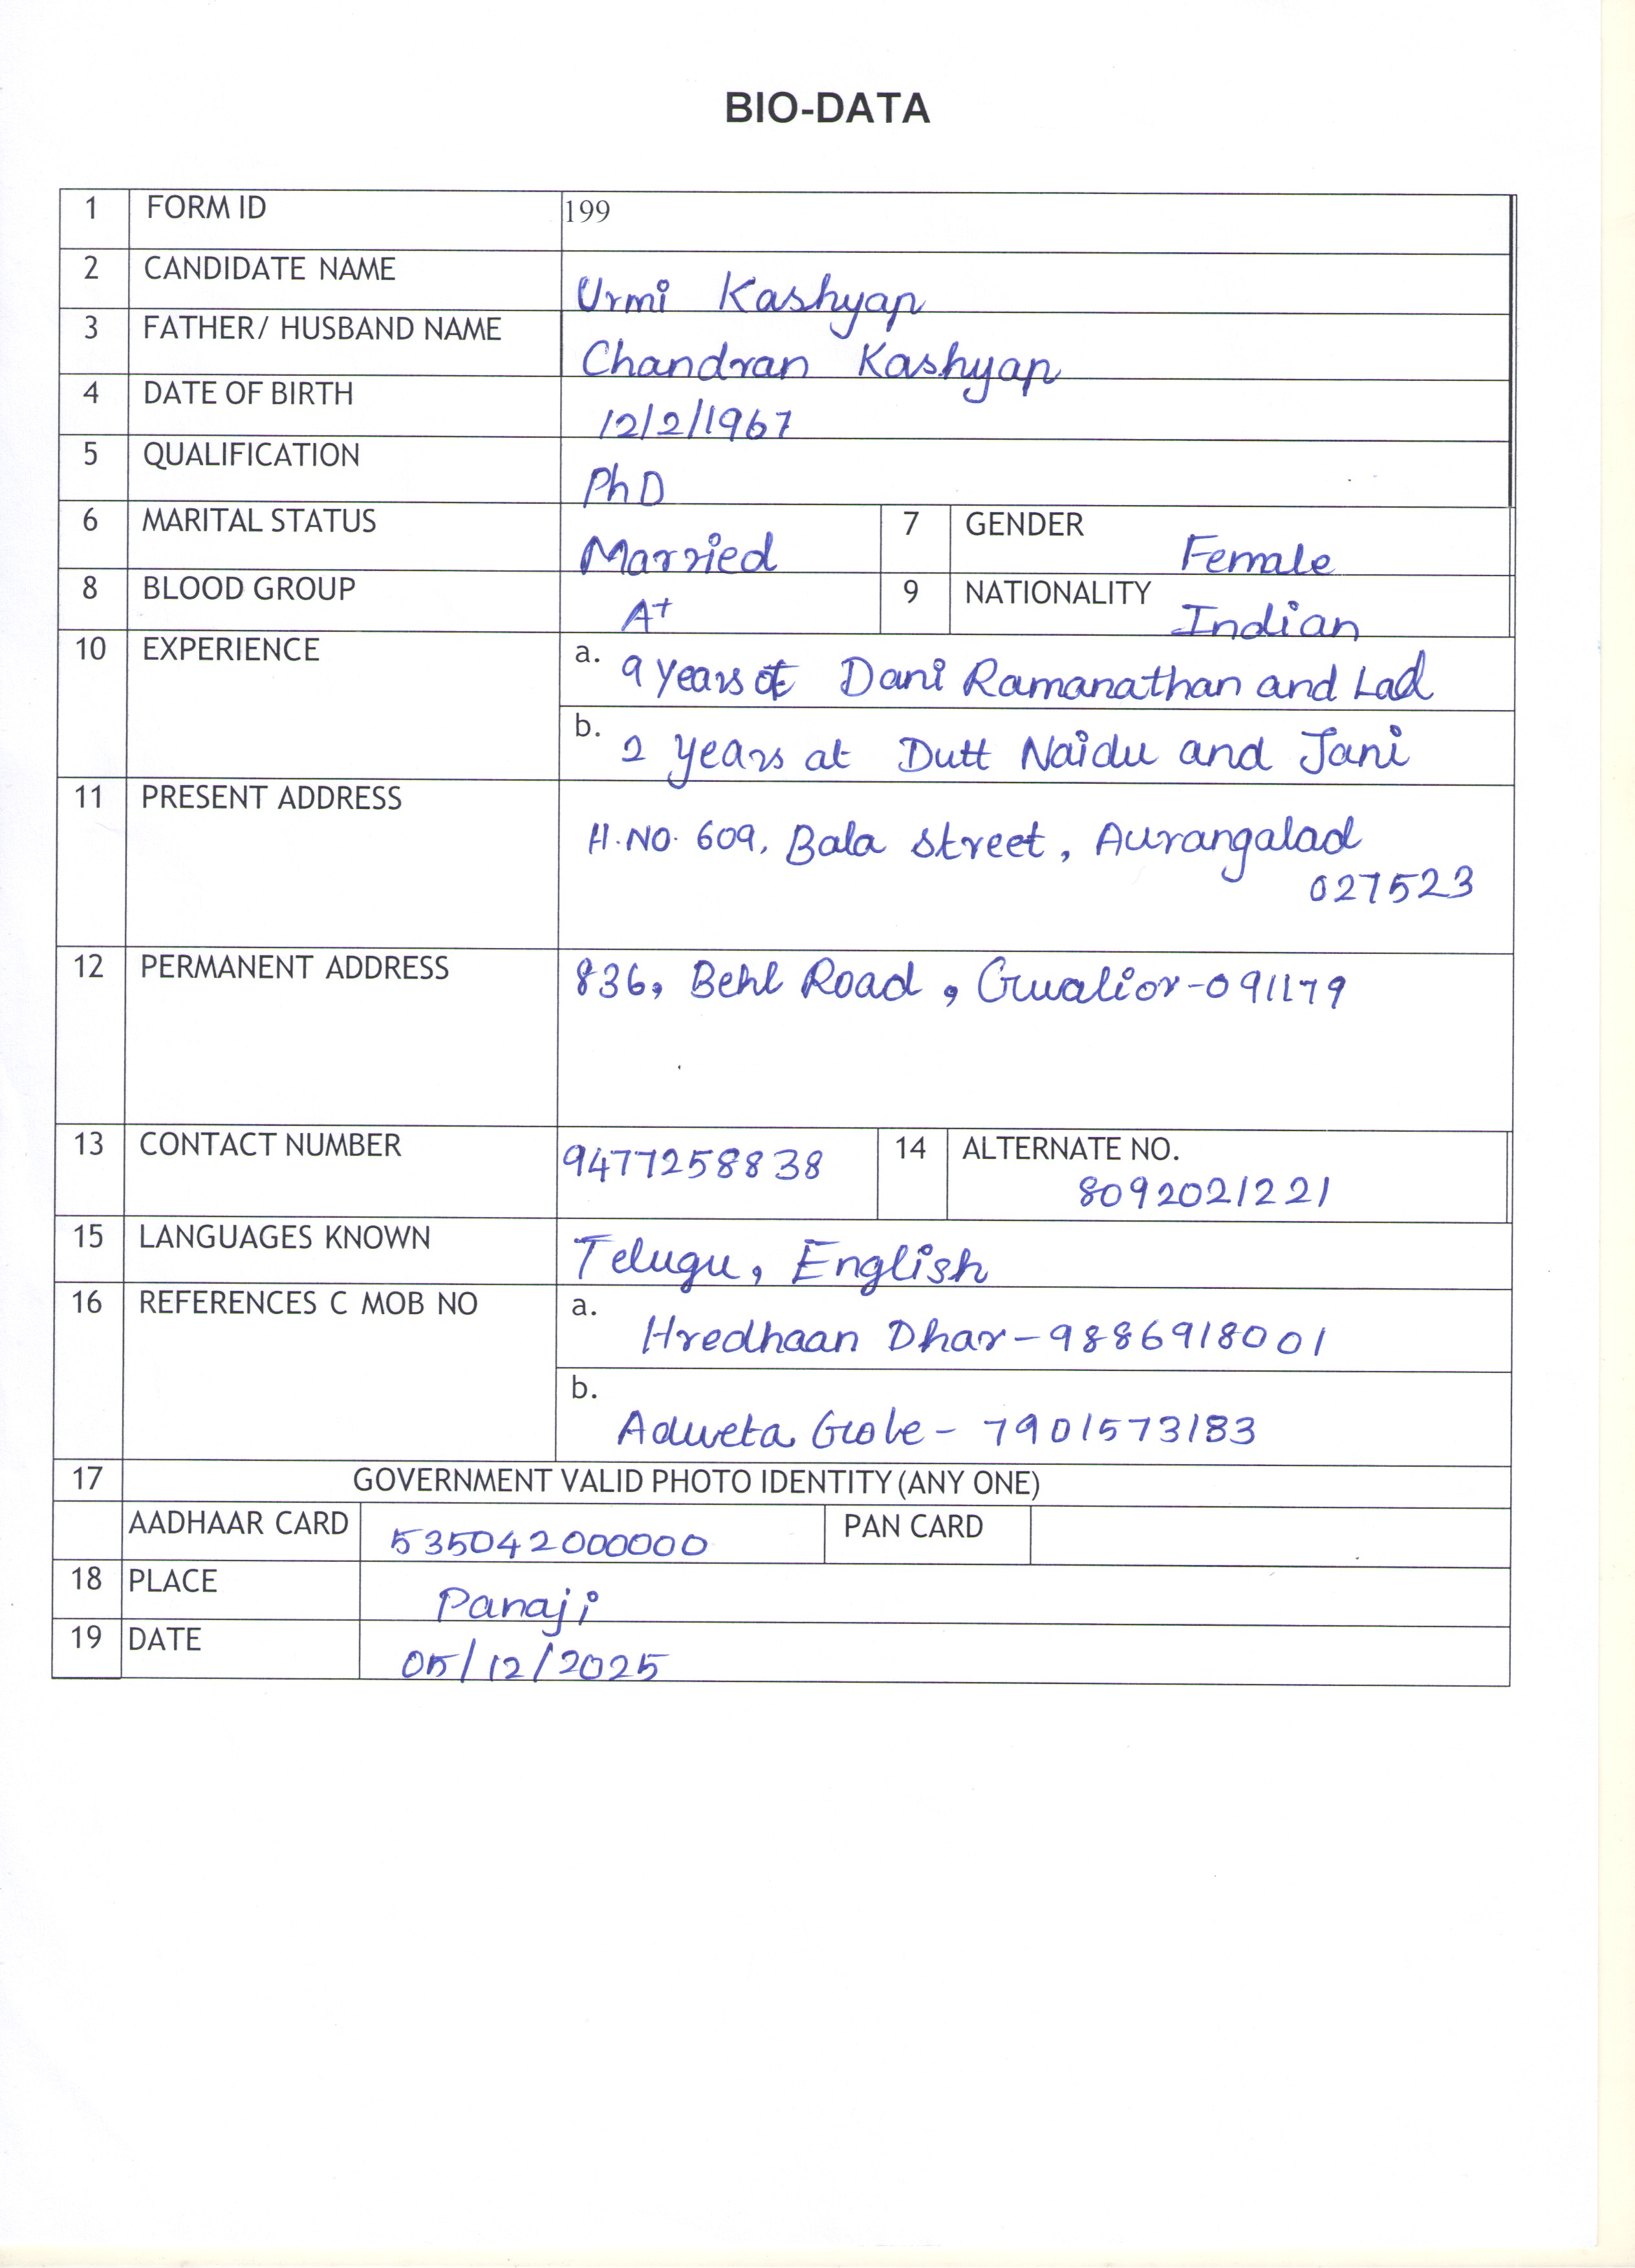 BIO-DATA
1 FORM ID 199
2 CANDIDATE NAME Urmi Kashyap
3 FATHER/ HUSBAND NAME Chandran Kashyap
4 DATE OF BIRTH 12/2/1967
5 QUALIFICATION PhD
6 MARITAL STATUS Married 7 GENDER Female
8 BLOOD GROUP A+ 9 NATIONALITY Indian
10 EXPERIENCE a. 9 years at Dani Ramanathan and Lad
b. 2 years at Dutt Naidu and Jani
11 PRESENT ADDRESS H.NO. 609, Bala street, Aurangalad
027523
12 PERMANENT ADDRESS 836, Behl Road, Gwalior-091179
13 CONTACT NUMBER 9477258838 14 ALTERNATE NO.
8092021221
15 LANGUAGES KNOWN Telugu, English
16 REFERENCES C MOB NO a. Hredhaan Dhar-9886918001
b. Adweta - 7901573183
17 GOVERNMENT VALID PHOTO IDENTITY (ANY ONE)
AADHAAR CARD 535042000000 PAN CARD
18 PLACE Panaji
19 DATE 05/12/2025